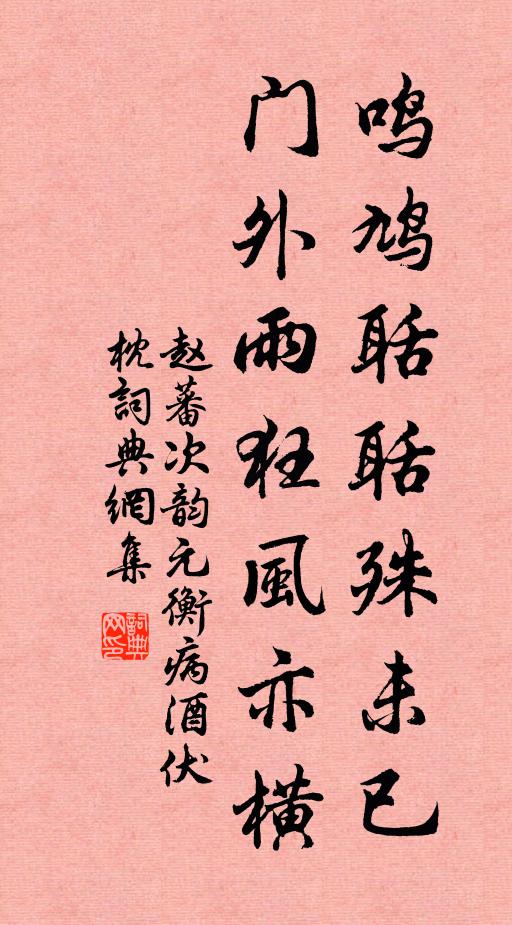 鸣鸠聒聒殊未已
门外雨狂風亦橫
赵蕃次韵元衡病酒伏
枕詞典網集
詞典网印